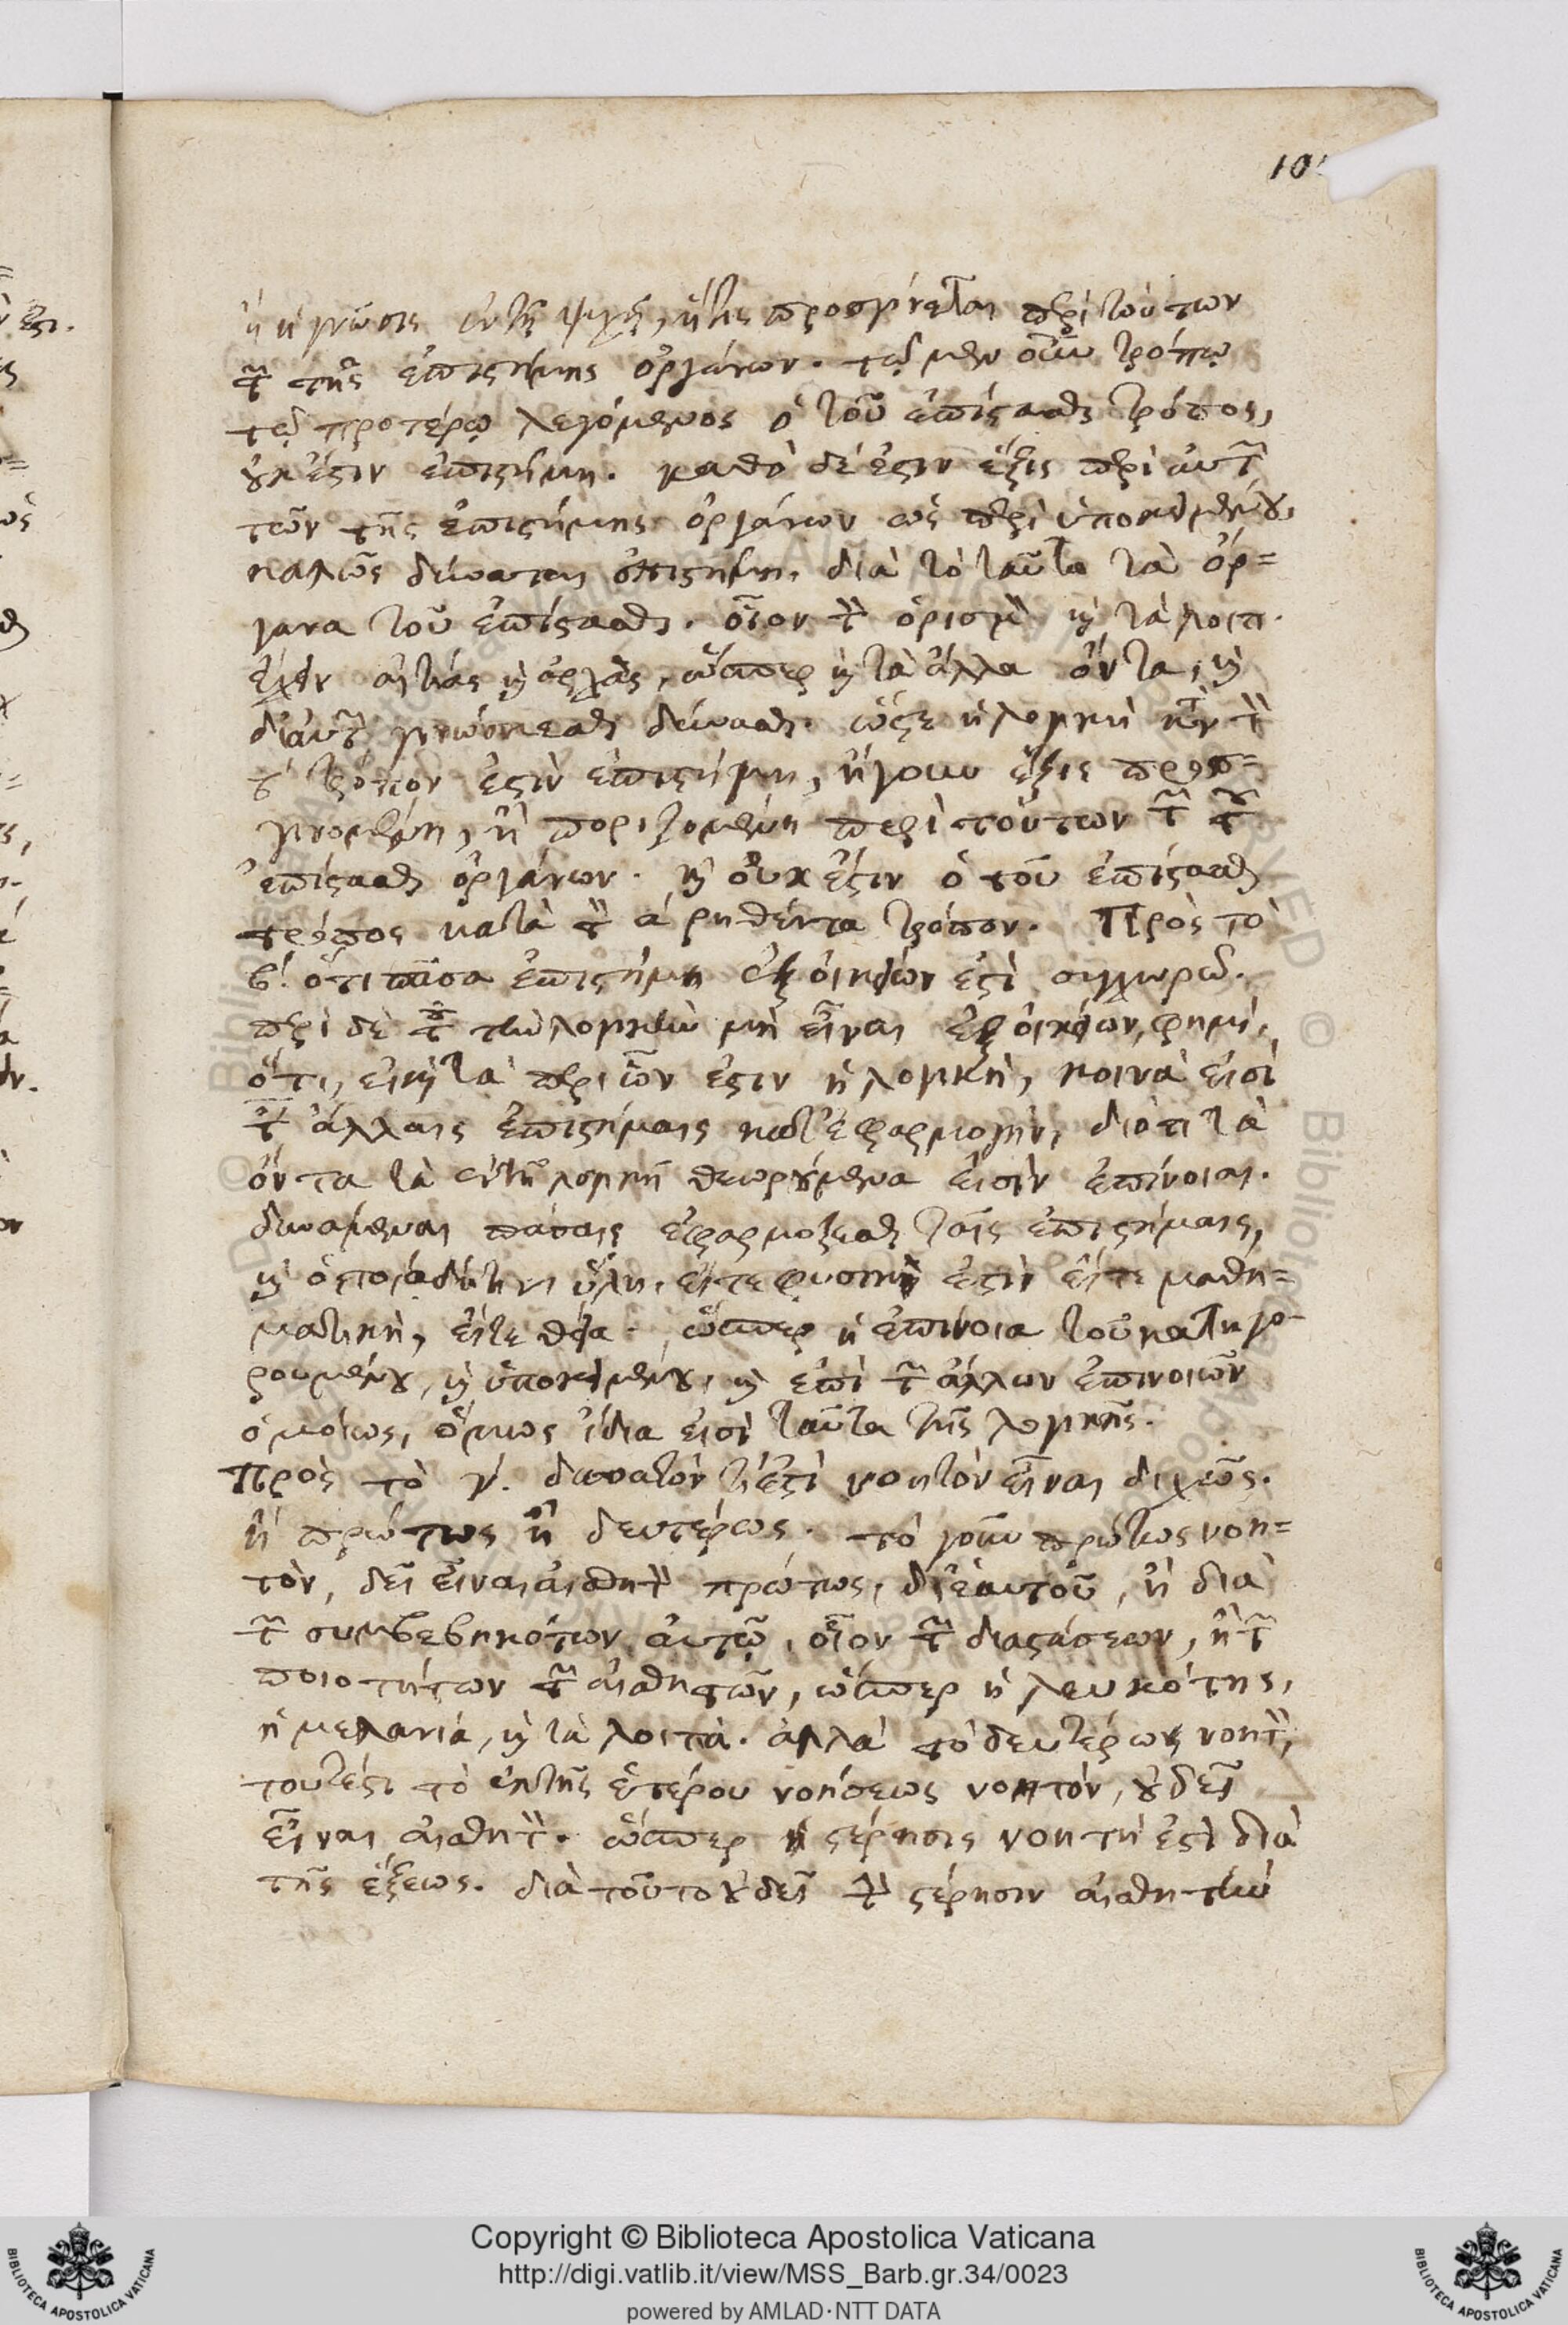 10
ἢ ἡ γνῶσις ἐν τῇ ψυχῇ, ἥτις προσγίνεται περὶ τούτων
τῶν τῆς ἐπιστήμης ὀργάνων. τῷ μὲν οὖν τρόπῳ
τῷ προτέρῳ λεγόμενος ὁ τοῦ ἐπίστασθαι τρόπος,
οὐκ ἔστιν ἐπιστήμη. καθὸ δέ ἐστιν ἕξις περὶ αὐτῶν
τῶν τῆς ἐπιστήμης ὀργάνων ὡς περὶ ὑποκειμένου,
καλῶς δύναται ἐπιστήμη, διὰ τὸ ταῦτα τὰ ὄρ=
γανα τοῦ ἐπίστασθαι. οἷον τὸν ὁρισμὸν καὶ τὰ λοιπ.
ἔχειν αἰτίας καὶ ἀρχὰς, ὥσπερ καὶ τὰ ἄλλα ὄντα, καὶ
δι' αὐτῶν γινώσκεσθαι δύνασθαι. ὥστε ἡ λογικὴ κατὰ τὸν
γ´ τρόπον ἐστὶν ἐπιστήμη, ἤγουν ἕξις προσ=
γινομένη, ἢ ποριζομένη περὶ τούτων τῶν τοῦ
ἐπίστασθαι ὀργάνων. καὶ οὐκ ἔστιν ὁ τοῦ ἐπίστασθαι
τρόπος κατὰ τὸν ά ῥηθέντα τρόπον. Πρὸς τὸ
β´. ὅτι πᾶσα ἐπιστήμη ἐξ οἰκείων ἐστὶ συγχωρῶ.
περὶ δὲ τοῦ τὴν λογικὴν μὴ εἶναι ἐξ οἰκείων, φημὶ,
ὅτι, εἰ καὶ τὰ περὶ ὧν ἐστιν ἡ λογικὴ, κοινά εἰσι
ταῖς ἄλλαις ἐπιστήμαις κατ' ἐφαρμογὴν, διότι τὰ
ὄντα τὰ ἐν τῇ λογικῇ θεωρούμενα εἰσὶν ἐπίνοιαι.
δυνάμεναι πάσαις ἐφαρμόζεσθαι ταῖς ἐπιστήμαις,
καὶ ὁποιᾳδήτινι ὕλῃ. εἴτε φυσικὴ ἐστὶν εἴτε μαθη=
ματικὴ, εἴτε θεία. ὥσπερ ἡ ἐπίνοια τοῦ κατηγο-
ρουμένου, καὶ ὑποκειμένου, καὶ ἐπὶ τῶν ἄλλων ἐπινοιῶν
ὁμοίως, ὅμως ἴδια εἰσὶ ταῦτα τῆς λογικῆς.
Πρὸς τὸ γ´. δυνατὸν τί ἐστὶ νοητὸν εἶναι διχῶς.
ἢ πρώτως ἢ δευτέρως. τὸ γοῦν πρώτως νοη=
τὸν, δεῖ εἶναι αἰσθητὸν πρώτως, δι' ἑαυτοῦ, ἢ διὰ
τῶν συμβεβηκότων αὐτῷ, οἷον τῶν διαστάσεων, ἢ τῶν
ποιοτήτων τῶν αἰσθητῶν, ὥσπερ ἡ λευκότης,
ἡ μελανία, καὶ τὰ λοιπά. ἀλλὰ τὸ δευτέρως νοητὸν,
τουτέστι τὸ ἐκ τῆς ἑτέρου νοήσεως νοητόν, οὐ δεῖ
εἶναι αἰσθητὸν. ὥσπερ ἡ στέρησις νοητὴ ἐστὶ διὰ
τῆς ἕξεως. διὰ τοῦτο οὐ δεῖ τὴν στέρησιν αἰσθητὴν
Copyright © Biblioteca Apostolica Vaticana
http://digi.vatlib.it/view/MSS_Barb.gr.34/0023
powered by AMLAD·NTT DATA
BIBLIOTECA APOSTOLICA VATICANA
BIBLIOTECA APOSTOLICA VATICANA